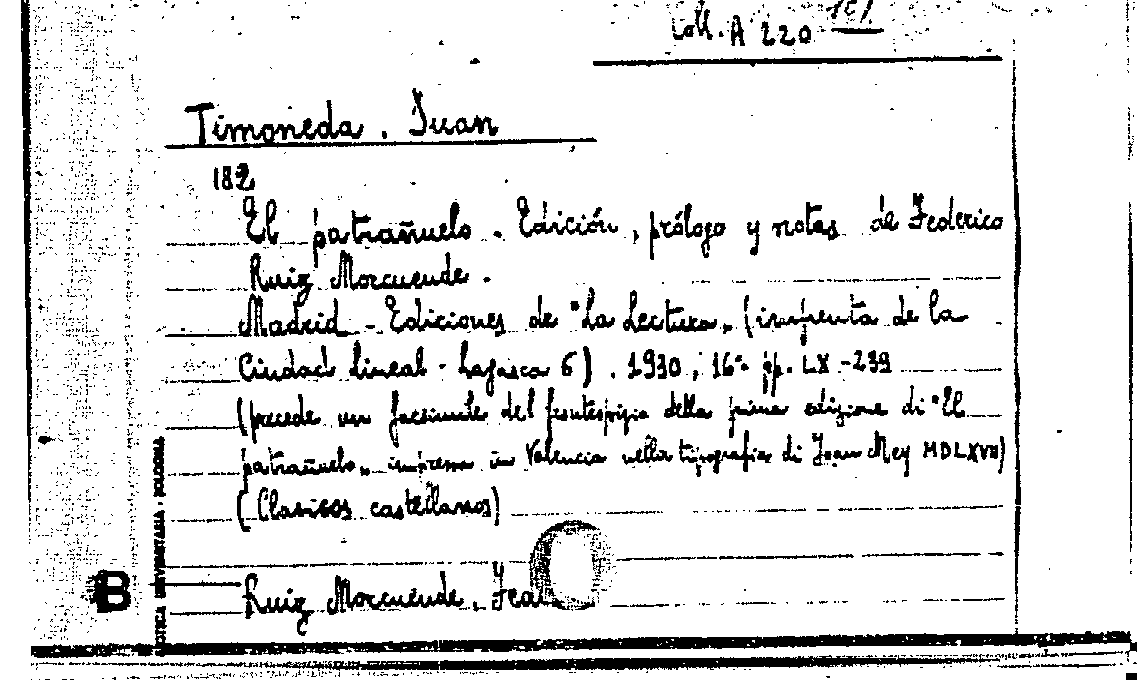 Coll. A 220
Timoneda. Juan
182
El patrañuelo. Edición, prólogo y notas de Federico
Ruiz Morcuende.
Madrid - Ediciones de "La Lectura" (imprenta de la
Ciudad lineal - Lagasca 6). 1930; 16° pp. LX-239
(precede un facsimile del frontespizio della prima edizione di "El
patrañuelo" impressa in Valencia nella tipografia di Joan Mey MDLXVII)
(Clasicos castellanos)
Ruiz Morcuende,
B
UNIVERSITARIA - BOLOGNA